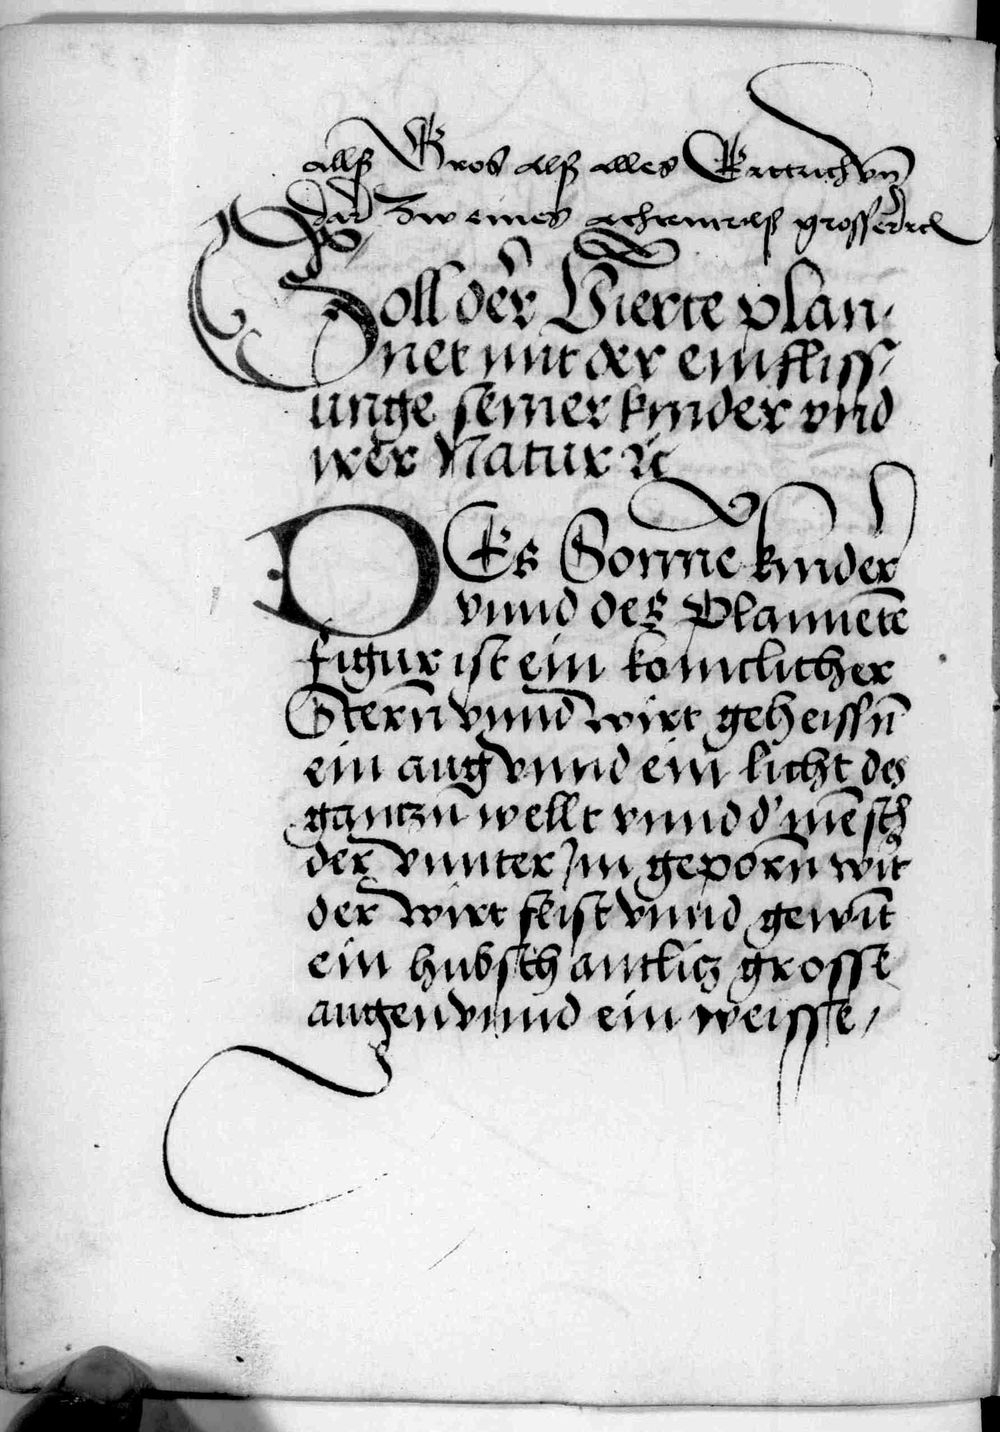 allß Gros alß alles Ertrich vn̄
dar Zw eines achtenteilß grosser
Soll der Vierte plan,
net mit der einfliss,
unge seiner kinder vnd
irer Natur ꝛc
DEs Sonne kinder
vnnd des Plannetē
figur ist ein konictlicher
Stern̄ vnnd wirt geheissn̄
ein aug vnnd ein licht des
gantzn̄ wellt vnnd d' mēsch
der vnnter Jm geporn̄ wirt
der wirt feist vnnd gewint
ein hubsch antlicz grosse
augen vnnd ein weisse,